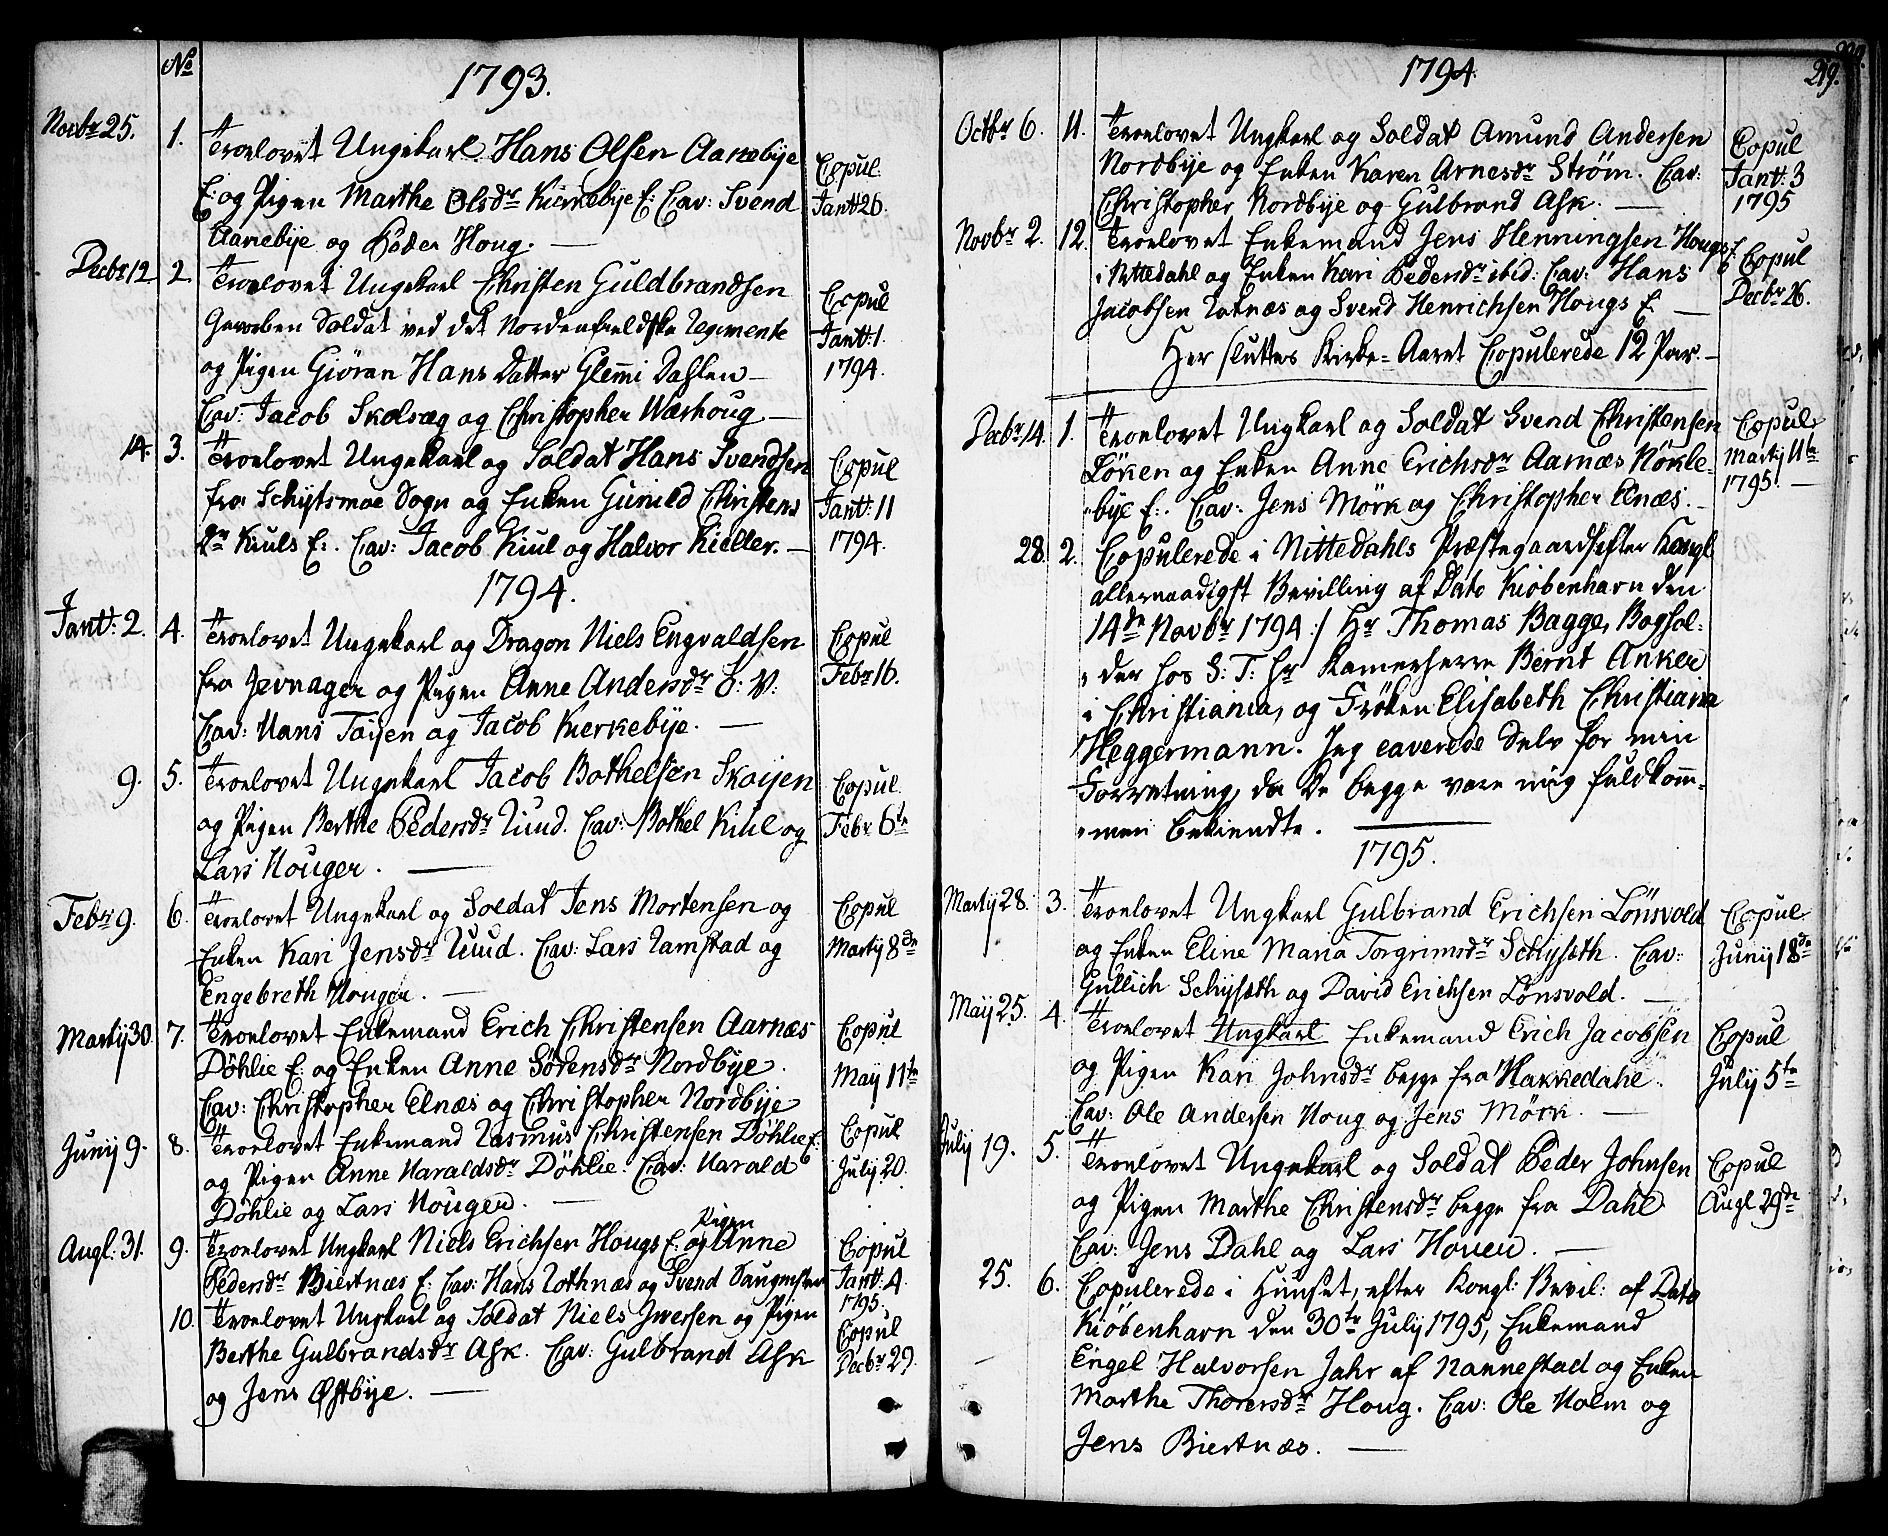 No
1793.
Novbr 25. 1. Troelovet Ungekarl Hans Olsen Aanebye
E: og Pigen Marthe Olsdr Kiernebye E: Cav: Svend
Aanebye og Peder Houg. —
Copul.
Janr: 26.
Decbr 12 2. Troelovet Ungekarl Christen Guldbrandsen
Gevorben Soldat ved det Nordenfieldske Regimente
og Pigen Giöran Hans Datter Glemmi Dahlen —
Cav: Jacob Skolsæg og Christopher Wærhoug. —
Copul
Janr: 1.
1794.
14. 3. Troelovet Ungekarl og Soldat Hans Svendsen
fra Schytsmoe Sogn og Enken Gunild Christens
Dr Kiuls E:. Cav: Jacob Kiul og Halvor Kieller. —
Copul
Janr: 11
1794.
1794.
Janr: 2. 4. Troelovet Ungekarl og Dragon Niels Engvaldsen
fra Jevnager og Pigen Anne Andersdr S: V:
Cav: Hans Taijen og Jacob Kierkebye. —
Copul
Febr 16.
9. 5. Troelovet Ungekarl Jacob Bothelsen Skaijen
og Pigen Berthe Pedersdr Ruud. Cav: Bothel Kiul og
Lars Houger. —
Copul.
Febr 6te
Febr 9. 6. Troelovet Ungekarl og Soldat Jens Mortensen og
Enken Kari Jensdr Ruud. Cav: Lars Ramstad og
Engebreth Houger. —
Copul
Martij 8de
Martij 30. 7. Troelovet Enkemand Erich Christensen Aarnæs
Döhlie E: og Enken Anne Sörensdr Nordbye.
Cav: Christopher Elnæs og Christopher Nordbye
Copul
Maij 11te
Junij 9. 8. Troelovet Enkemand Rasmus Christensen Döhlie E:
og Pigen Anne Haraldsdr Döhlie. Cav: Harald
Döhlie og Lars Houger. —
Copul
Julij 20.
Pigen
Augl: 31. 9. Troelovet Ungkarl Niels Erichsen Hougs E: og Anne
Pedersdr Biertnæs E: Cav: Hans Rothnæs og Svend
Copul
Janr: 4.
1795.
10. Troelovet Ungkarl og Soldat Niels Jwersen og Pigen
Berthe Gulbrandsdr Ask. Cav: Gulbrand Ask
og Jens Østbye. —
Copul
Decbr 29.
1794
219.
Octbr 6. 11. Troelovet Ungkarl og Soldat Amund Andersen
Nordbye og Enken Karen Arnesdr Ström. Cav:
Christopher Nordbye og Gulbrand Ask. —
Copul
Janr: 3
1795
Novbr 2. 12. Troelovet Enkemand Jens Henningsen Hougs E
i Nittedahl og Enken Kari Pedersdr ibid: Cav: Hans
Jacobsen Rotnæs og Svend Henrichsen Hougs E —
Copul
Decbr 26.
Her sluttes Kirke=Aaret Copulerede 12 Par. —
Decbr 14. 1. Troelovet Ungkarl og Soldat Svend Christensen
Löken og Enken Anne Erichsdr Aarnæs Nökle-
bye E:. Cav: Jens Mörk og Christopher Elnæs. —
Copul
Martij 11te
1795. —
28. 2. Copulerede i Nittedahls Præstegaard efter Kongl
allernaadigst Bevilling af Dato Kiöbenhavn den
14de Novbr 1794 :/ Hr Thomas Bagge, Boghol-
der hos S: T: Hr Kamerherre Bernt Anker
i Christiania, og Fröken Elisabeth Christiana
Heggermann. Jeg caverede Selv for min
Forretning, da De begge vare mig fuldkom̄-
men bekiendte. —
1795.
Martij 28. 3. Troelovet Ungkarl Gulbrand Erichsen Lönsvold
og Enken Eline Maria Torgrimsdr Schysæth. Cav:
Gullich Schysæth og David Erichsen Lönsvold. —
Copul
Junij 18de
Maij 25. 4. Troelovet Ungkarl Enkemand Erich Jacobsen
og Pigen Kari Johnsdr begge fra Hakkedahl.
Cav: Ole Andersen Houg og Jens Mörk. —
Copul
Julij 5te
Julij 19. 5. Troelovet Ungekarl og Soldat Peder Johnsen
og Pigen Marthe Christensdr begge fra Dahl
Cav: Jens Dahl og Lars Houen. —
Copul
Augl 29de
25. 6. Copulerede i Huuset, efter Kongl: Bevil: af Dato
Kiöbenhavn den 30te Julij 1795, Enkemand
Engel Halvorsen Jahr af Nannestad og Enken
Marthe Thorersdr Houg. Cav: Ole Holm og
Jens Biertnæs. —